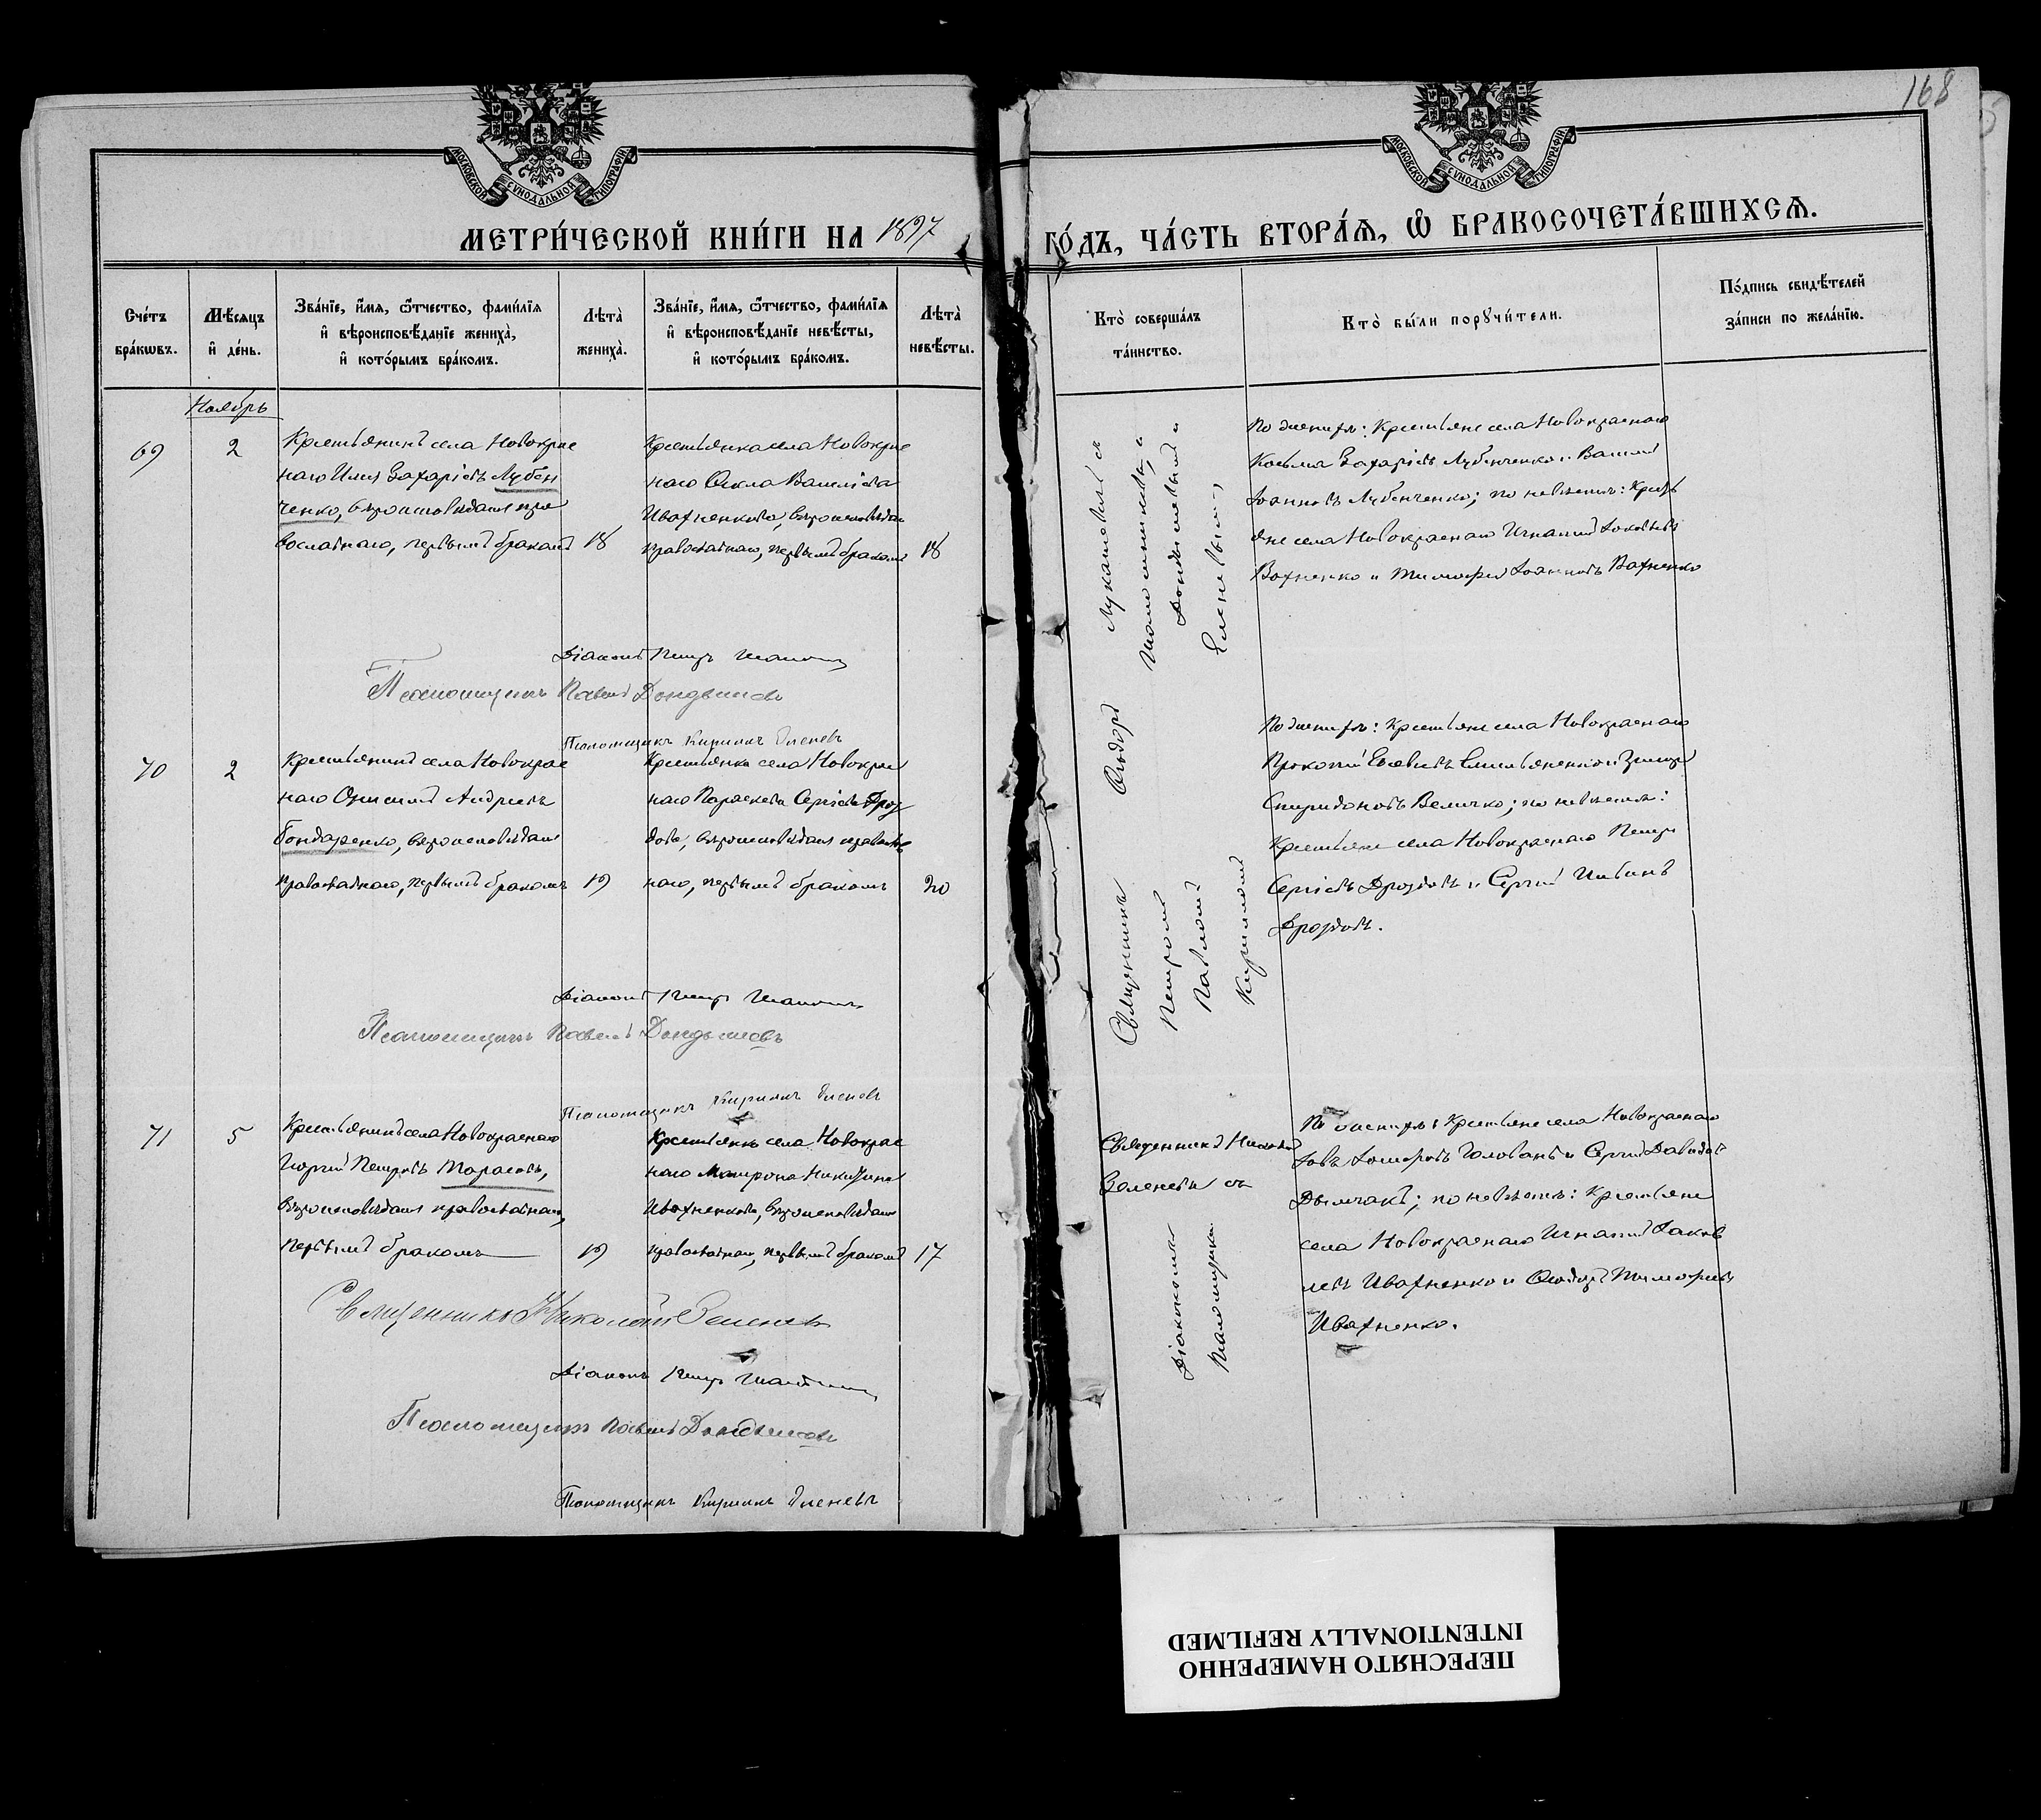 168
МОСКОВСКОЙ СѴНОДАЛЬНОЙ ТИПОГРАФІИ
МОСКОВСКОЙ СѴНОДАЛЬНОЙ ТИПОГРАФІИ
МЕТРИ́ЧЕСКОЙ КНИ́ГИ НА 1897
ГО́ДЪ, ЧА́СТЬ ВТОРА́Ѧ, Ѡ҆ БРАКОСОЧЕТА́ВШИХСѦ.
Сче́тъ бра́кѡвъ.
Мѣ́сяцъ и҆ де́нь.
Зва́нїе, и҆́мя, ѻ҆́тчество, фами́лїя
и҆ вѣроисповѣ́данїе жениха̀,
и҆ кото́рымъ бра́комъ.
Лѣта̀ жениха̀.
Зва́нїе, и҆́мя, ѻ҆́тчество, фами́лїя
и҆ вѣроисповѣ́данїе невѣ́сты,
и҆ кото́рымъ бра́комъ.
Лѣта̀ невѣ́сты.
Кто̀ соверша́лъ
та́инство.
Кто̀ бы́ли порꙋчи́тели.
По́дпись свидѣ́телей
за́писи по жела́нїю.
Ноябрь
69
2
Крестьянинъ села Новокрас
наго Илия Захаріевъ Лубен
ченко, вѣроисповѣданія пра
вославнаго, первымъ бракомъ
18
Крестьянка села Новокрас
наго Ѳекла Василіева
Ивахненкова, вѣроисповѣдан
православнаго, первымъ бракомъ
18
По женихѣ: Крестьяне села Новокраснаго
Косьма Захаріевъ Лубенченко и Василій
Іоанновъ Лубенченко; по невѣстѣ: Кресть
яне села Новокраснаго Игнатій Іаковлевъ
Вахненко и Тимофей Іоанновъ Вахненко
Діаконъ Петръ
Псаломщикъ Павелъ Дондышевъ
Псаломщикъ Кириллъ Еленевъ
70
2
Крестьянинъ села Новокрас
наго Онисимъ Андреевъ
Бондаренко, вѣроисповѣданія
православнаго, первымъ бракомъ
19
Крестьянка села Новокрас
наго Параскева Сергіева Дроз
дова, вѣроисповѣданія православ
наго, первымъ бракомъ
20
По женихѣ: Крестьяне села Новокраснаго
Прокопій Емельяненко и
Спиридоновъ Величко; по невѣстѣ:
Крестьяне села Новокраснаго Петръ
Сергіевъ Дроздовъ и Сергій
Дроздовъ.
Священникъ Ѳеодоръ Лукашевичъ съ
Петромъ
Павломъ Дондышевымъ и
Кирилломъ Еленевымъ
Діаконъ Петръ
Псаломщикъ Павелъ Дондышевъ
Псаломщикъ Кириллъ Еленевъ
71
5
Крестьянинъ села Новокраснаго
Георгій Петровъ Тарасовъ,
вѣроисповѣданія православнаго,
первымъ бракомъ
19
Крестьянка села Новокрас
наго Матрона Никитина
Ивахненкова, вѣроисповѣданія
православнаго, первымъ бракомъ
17
Священникъ Николай
Зеленевъ съ
Діакономъ
Псаломщиками
По женихѣ: Крестьяне села Новокраснаго
Іовъ Голованъ и Сергій Давидовъ
Дымчакъ; по невѣстѣ: Крестьяне
села Новокраснаго Игнатій Іаков
левъ Ивахненко и Ѳеодоръ Тимофеевъ
Ивахненко.
Священникъ Николай Зеленевъ
Діаконъ Петръ
Псаломщикъ Павелъ Дондышевъ
Псаломщикъ Кириллъ Еленевъ
ПЕРЕСНЯТО НАМЕРЕННО
INTENTIONALLY REFILMED